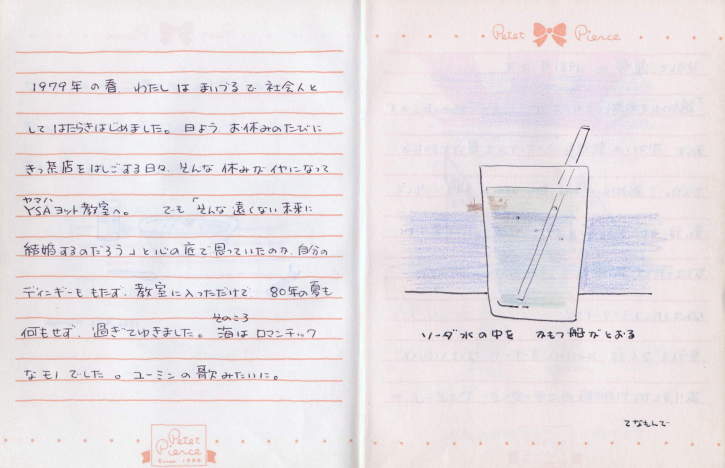 1979年の春 わたしは まいづるで 社会人と
して はたらきはじめました。 日よう お休みのたびに
きっ茶店をはしごする日々、そんな 休みがイヤになって
ヤマハ
YSAヨット教室へ。 でも「そんな 遠くない未来に
結婚するのだろう」と心の底で思っていたのか、自分の
ディンギーももたず、教室に入っただけで 80年の夏も
そのころ
何もせず、過ぎてゆきました。 海は ロマンチック
なモノでした。ユーミンの歌みたいに。
Petet
Pierce
Petet Pierce
ソーダ水の中を かもつ船がとおる
てなもんで